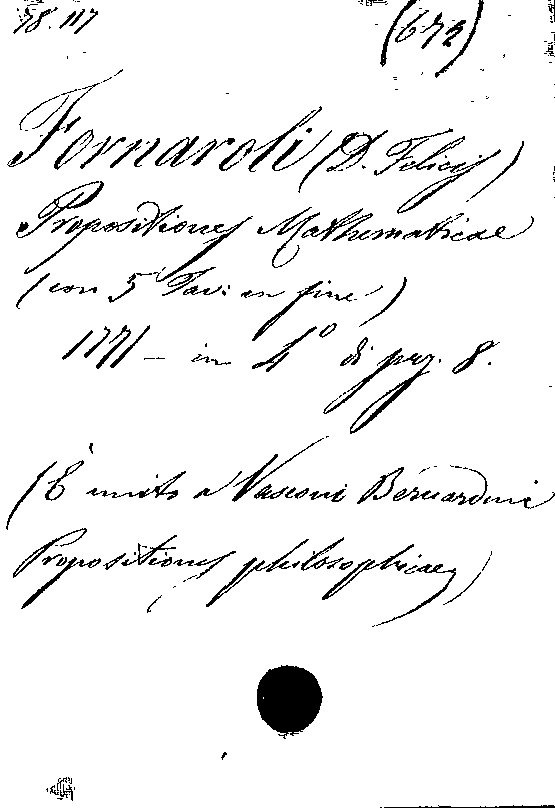 78.117
(672)
Fornaroli (D. Felicis)
Propositiones Mathematicae
(con 5 Tav: in fine)
1771 - in 4° di pag. 8.
(È unito a Vasconi Bernardini
Propositiones philosophicae)